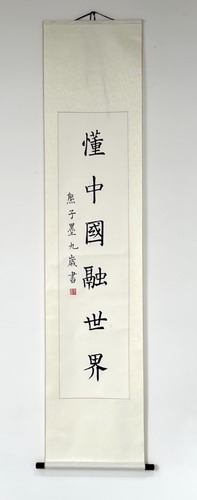 懂中國融世界
熊子墨九歲書